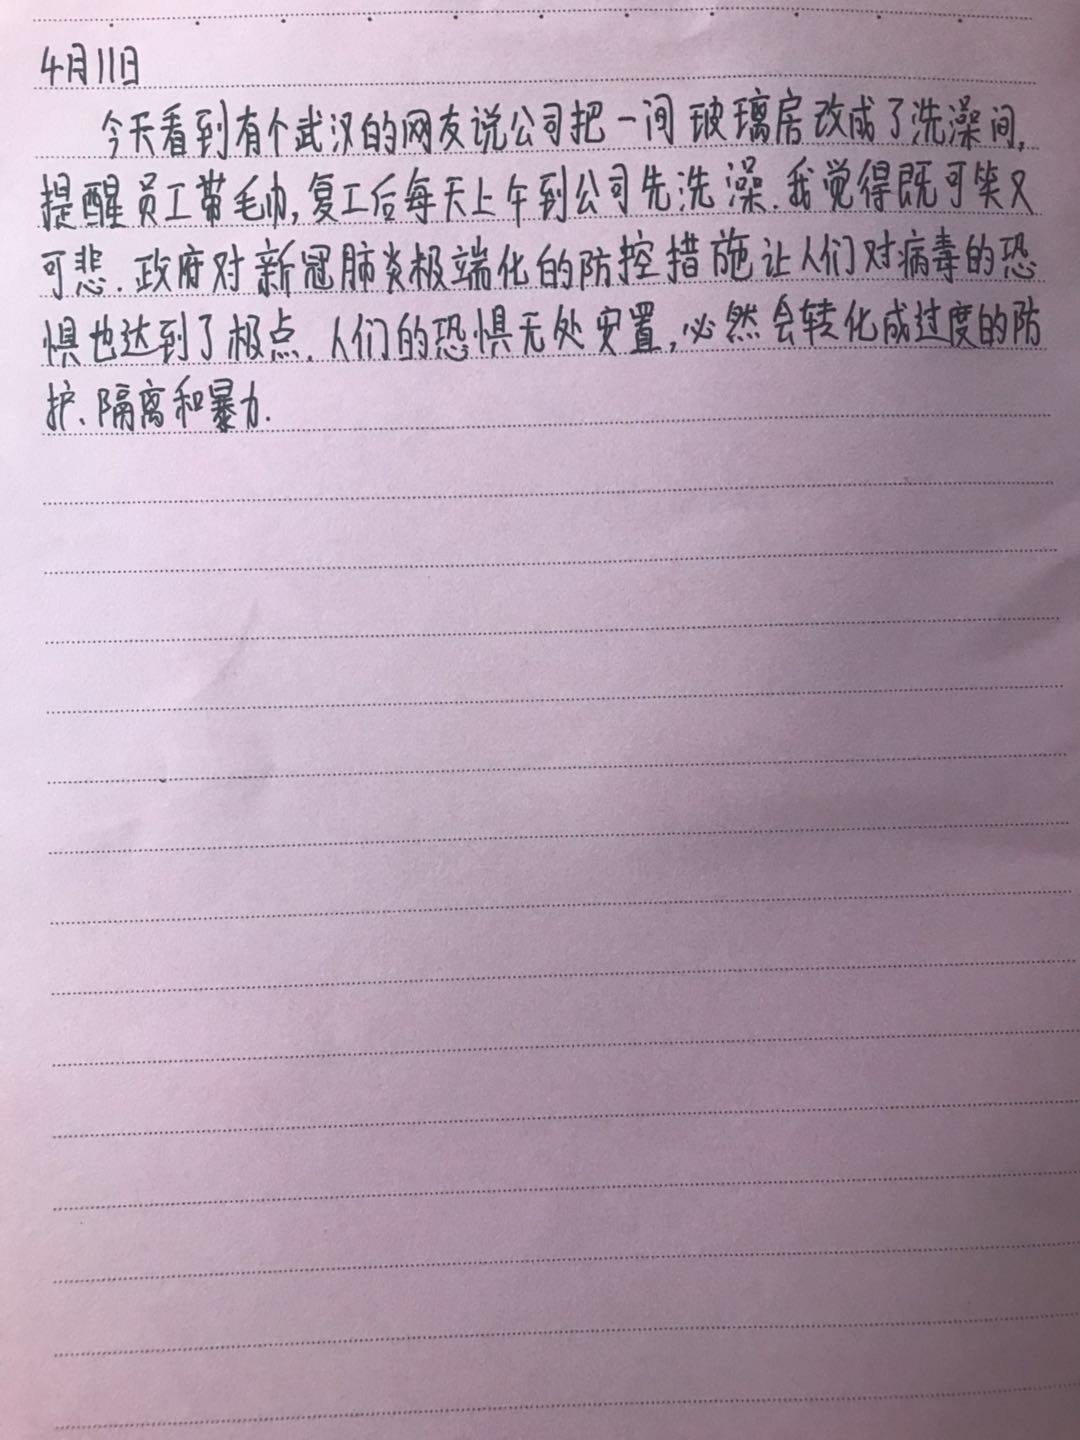 4月11日
今天看到有个武汉的网友说公司把一间玻璃房改成了洗澡间,
提醒员工带毛巾,复工后每天上午到公司先洗澡.我觉得既可笑又
可悲.政府对新冠肺炎极端化的防控措施让人们对病毒的恐
惧也达到了极点.人们的恐惧无处安置,必然会转化成过度的防
护、隔离和暴力.